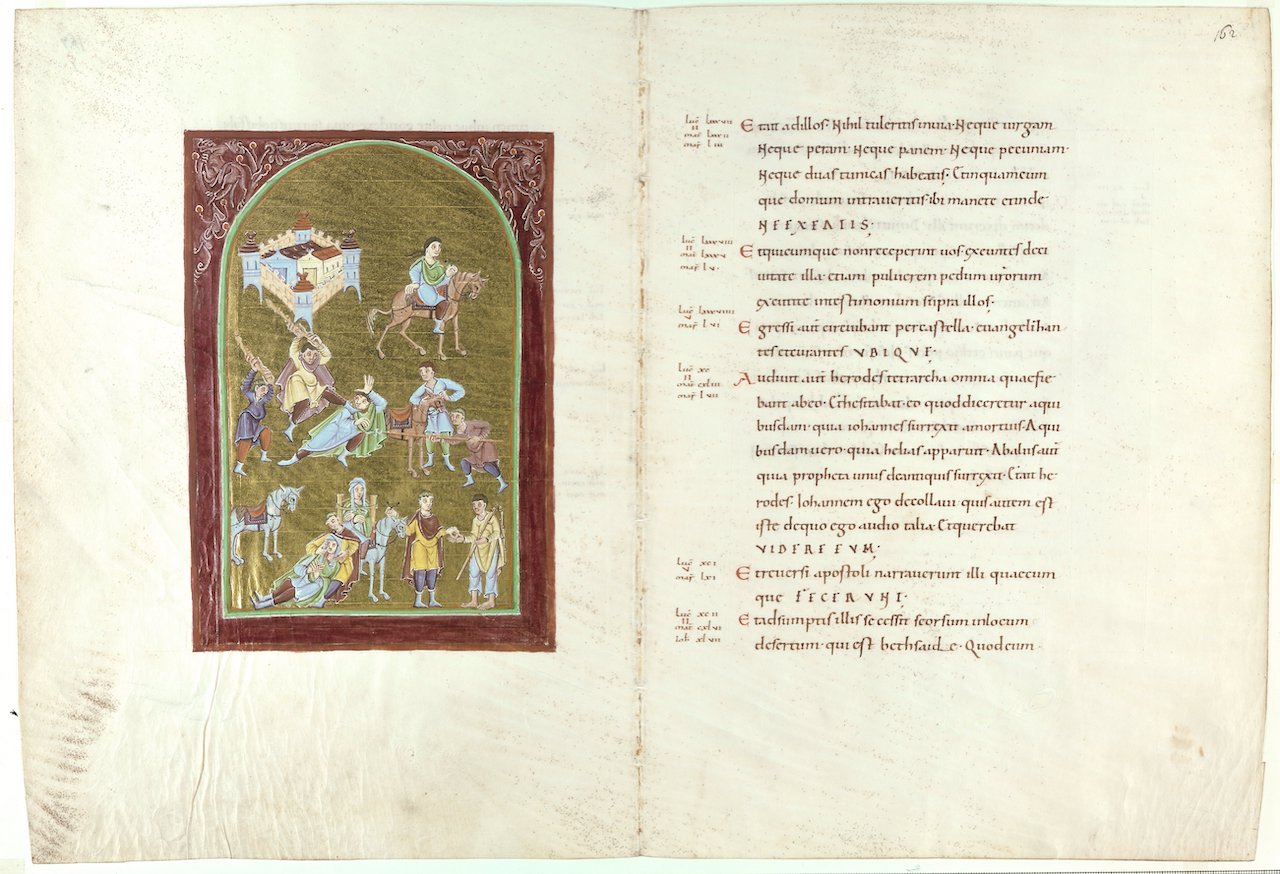 162
Luc̄ lxxxvii
II
mar̄ lxxii
mat̄ LIII
Et ait ad illos· Nihil tuleritis in via· Neque virgam
Neque peram· Neque panem· Neque pecuniam·
Neque duas tunicas habeatis· Et inquamcum
que domum intraveritis· ibi manete et inde
NE EXEATIS·
Luc̄ lxxxviii
II
mat̄ lxxxv
mar̄ lv·
Et quicumque non receperint vos· exeuntes de ci
vitate illa· etiam pulverem pedum vr̄orum
excutite intestimonium supra illos·
Luc̄ lxxxviiii
mar̄ lvi
Egressi aut̄ circuibant per castella· euangelizan
tes et curantes VBIQVE·
Luc̄ xc
II
mat̄ cxliii
mar̄ lvii
Audivit aut̄ herodes tetrarcha omnia quae fie
bant ab eo· Et hesitabat· eo quod diceretur a qui
busdam· quia iohannes surrexit a mortuis· A qui
busdam vero· quia helias apparuit· Ab aliis aut̄
quia propheta unus de antiquis surrexit· Et ait he
rodes· Iohannem ego decollavi· quis autem est
iste de quo ego audio talia· Et querebat
VIDERE EVM·
Luc̄ xci
mar̄ lxi
Et reversi apostoli narraverunt illi quaecum
que FECERVNT·
Luc̄ xcii
II
mat̄ cxlvi
ioh̄ xlvii
Et adsumptis illis secessit seorsum in locum
desertum· qui est bethsaide· Quod cum